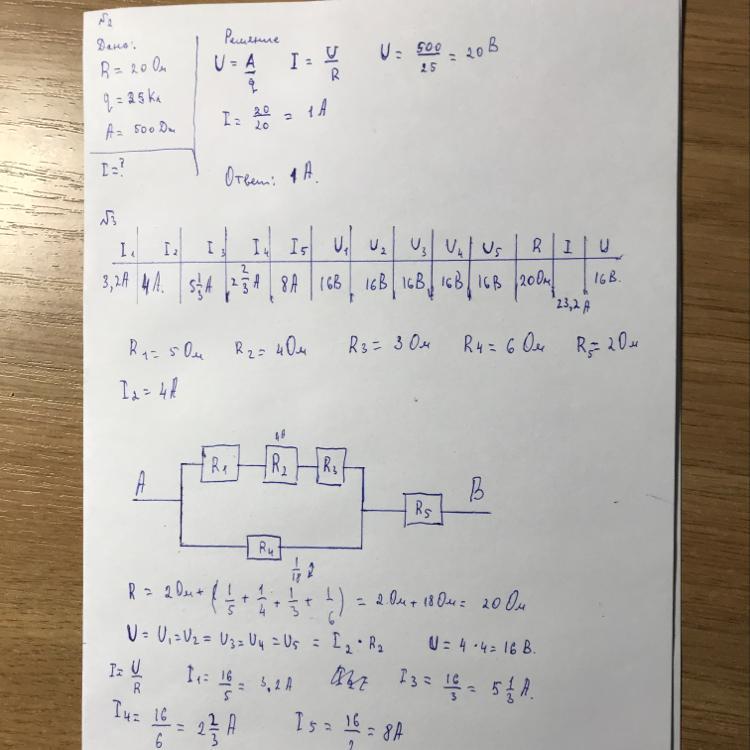 №2
Дано:
R = 20 Ом
q = 25 Кл
A = 500 Дж
I = ?
Решение
U = A/q I = U/R U = 500/25 = 20 В
I = 20/20 = 1 А
Ответ: 1 А.
№3
I₁ I₂ I₃ I₄ I₅ U₁ U₂ U₃ U₄ U₅ R I U
3,2А 4А. 5 1/3 А 2 2/3 А 8А 16В 16В 16В 16В 16В 20Ом 23,2 А 16В.
R₁ = 5 Ом R₂ = 4 Ом R₃ = 3 Ом R₄ = 6 Ом R₅ = 2 Ом
I₂ = 4 А
A R₁ R₂ R₃ R₅ B
R₄
R = 2 Ом + (1/5 + 1/4 + 1/3 + 1/6) = 2 Ом + 18 Ом = 20 Ом
U = U₁ = U₂ = U₃ = U₄ = U₅ = I₂ · R₂ U = 4 · 4 = 16 В.
I = U/R I₁ = 16/5 = 3,2 А I₃ = 16/3 = 5 1/3 А.
I₄ = 16/6 = 2 2/3 А I₅ = 16/2 = 8А